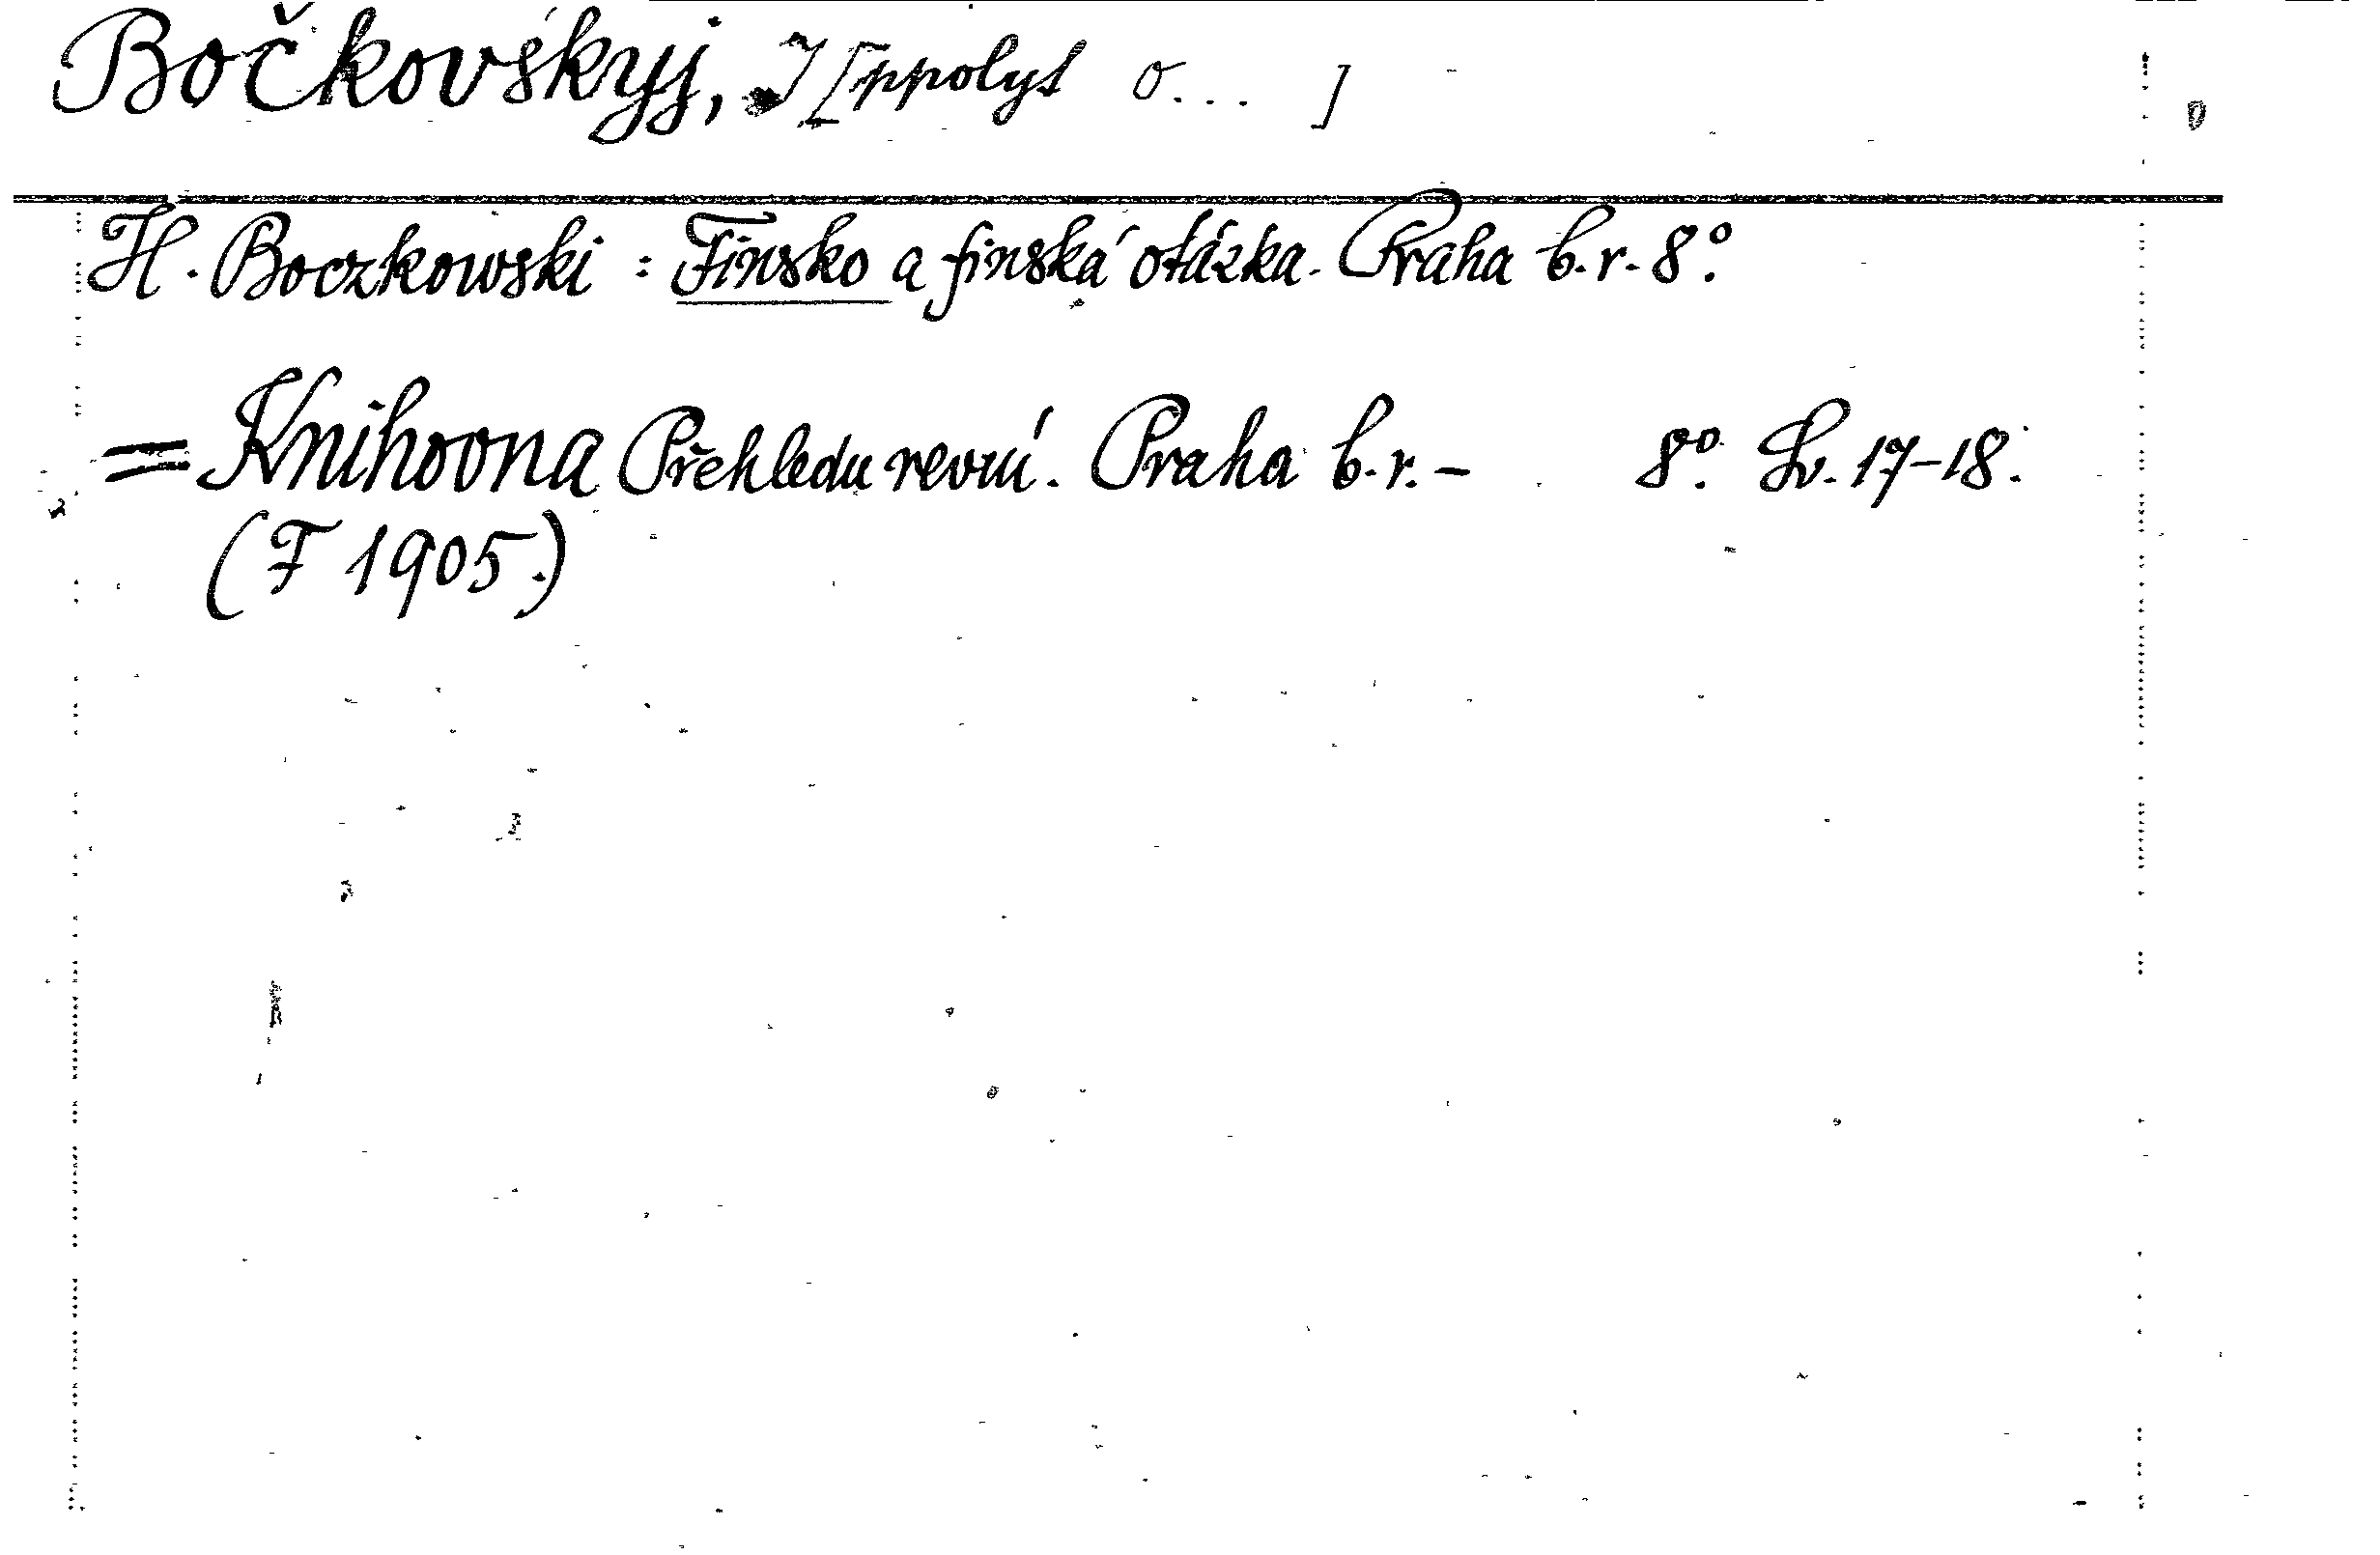 Bočkovśkyj, I[ppolyt O... ]
H. Boczkowski: Finsko a finská otázka. Praha b.r. 8°.
= Knihovna Přehledu revuí. Praha b.r. – 8°. Sv. 17-18.
(F 1905.)